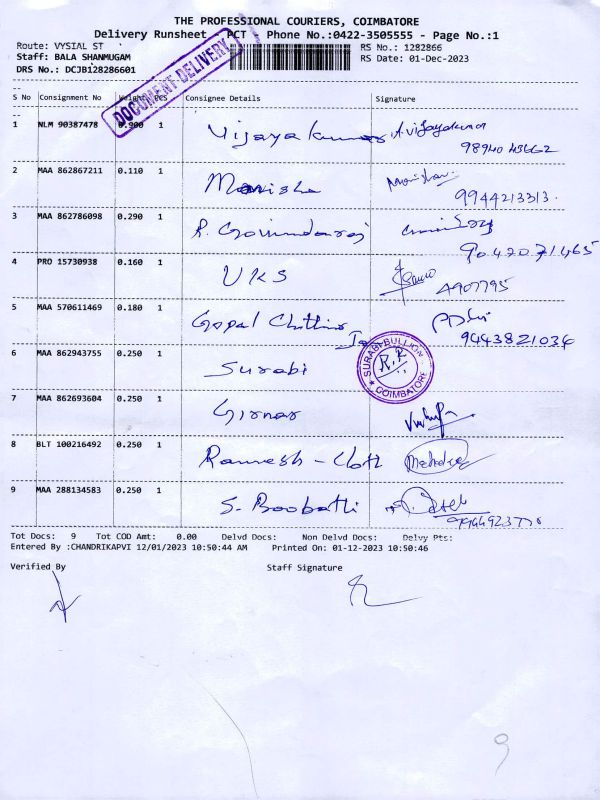 THE PROFESSIONAL COURIERS, COIMBATORE
Delivery Runsheet PCT Phone No.:0422-3505555 - Page No.:1
Route: VYSIAL ST
RS No.: 1282866
Staff: BALA SHANMUGAM
RS Date: 01-Dec-2023
DRS No.: DCJB128286601
DOCUMENT DELIVERY
S No Consignment No Weight PCS Consignee Details Signature
1 NLM 90387478 0.900 1 Vijayakumar A.Vijayakumar
2 MAA 862867211 0.110 1 Manisha
9944213313
3 MAA 862786098 0.290 1 R. Govindaraj
9042071465
4 PRO 15730938 0.160 1 UKS
4907795
5 MAA 570611469 0.180 1 Gopal Clothing
9443821034
6 MAA 862943755 0.250 1 Surabi
SURABI BULLION
R.R
COIMBATORE
7 MAA 862693604 0.250 1 Girnar
8 BLT 100216492 0.250 1 Ramesh - Cloth
9 MAA 288134583 0.250 1 S. Boobathi
Tot Docs: 9 Tot COD Amt: 0.00 Delvd Docs: Non Delvd Docs: Delvy Pts:
Entered By :CHANDRIKAPVI 12/01/2023 10:50:44 AM Printed On: 01-12-2023 10:50:46
Verified By Staff Signature
9